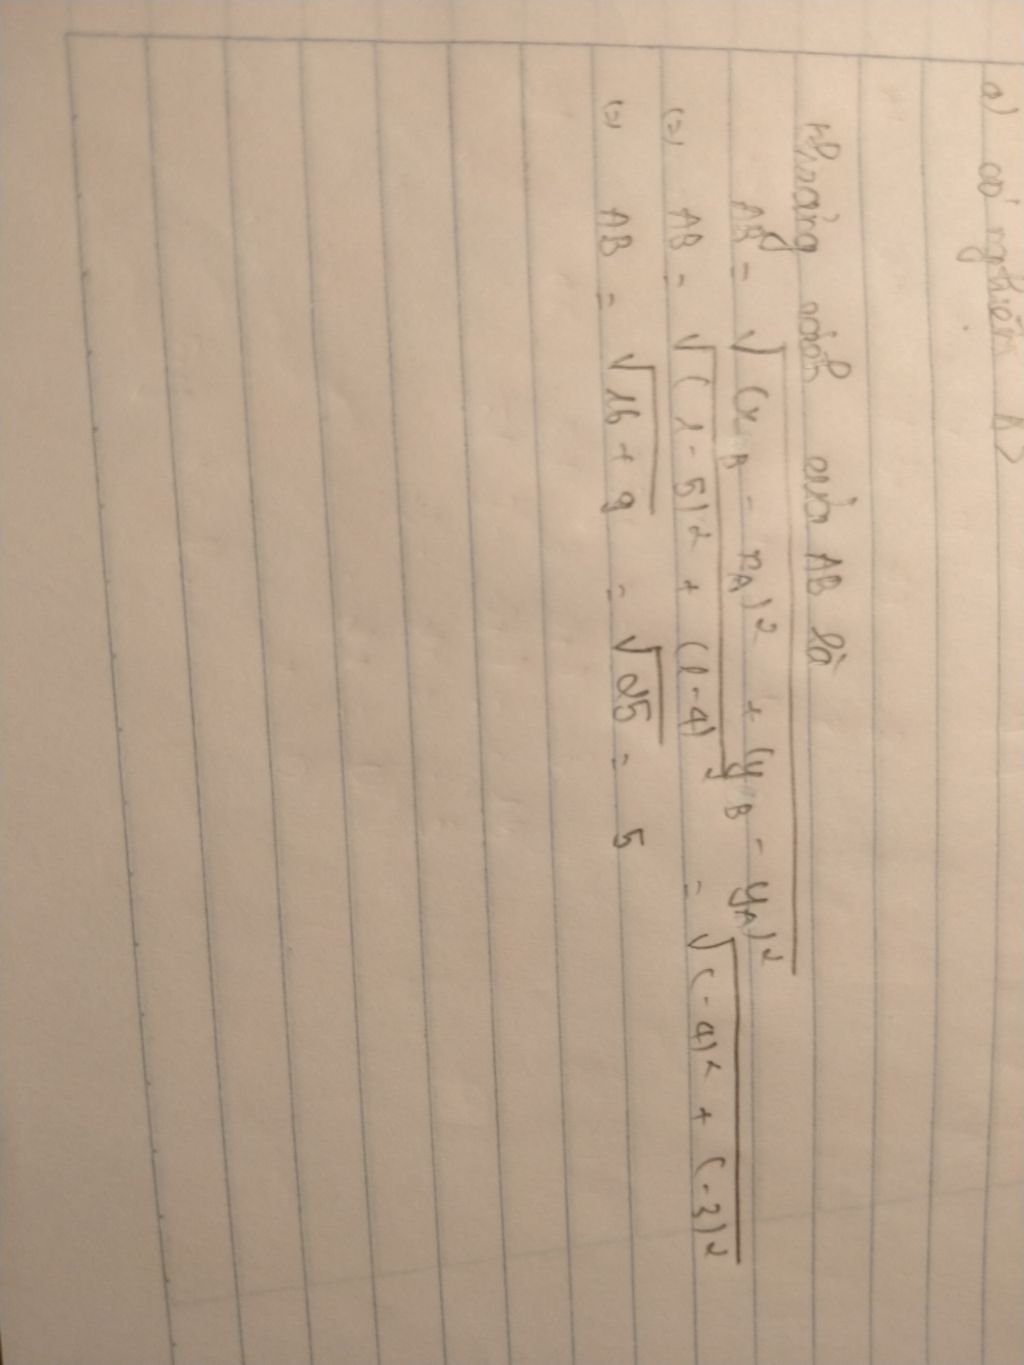 a) có nghiên
Khoảng cách của AB là
AB = √(x_B - x_A)² + (y_B - y_A)²
(=) AB = √(1-5)² + (1-4)² = √(-4)² + (-3)²
(=) AB = √16 + 9 = √25 = 5